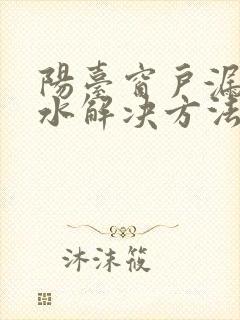 陽臺窗戶漏
水解決方法
沐沫筱